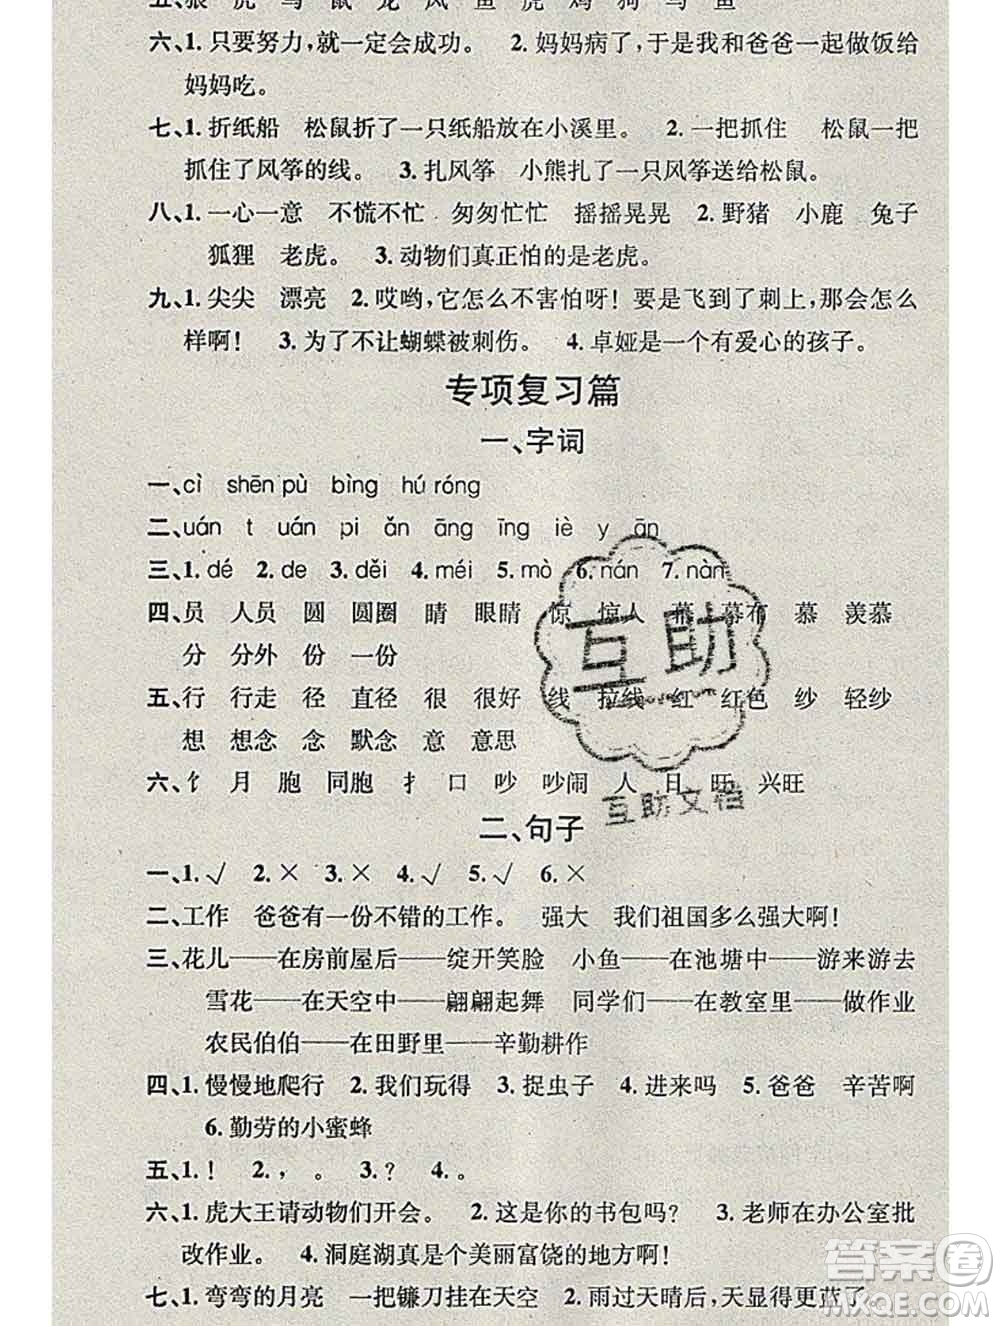 五、狼 虎 鸟 鼠 龙 凤 鱼 虎 鸡 狗 鸟 鱼
六、1. 只要努力，就一定会成功。 2. 妈妈病了，于是我和爸爸一起做饭给
妈妈吃。
七、1. 折纸船 松鼠折了一只纸船放在小溪里。 2. 一把抓住 松鼠一把
抓住了风筝的线。 3. 扎风筝 小熊扎了一只风筝送给松鼠。
八、1. 一心一意 不慌不忙 匆匆忙忙 摇摇晃晃 2. 野猪 小鹿 兔子
狐狸 老虎。 3. 动物们真正怕的是老虎。
九、1. 尖尖 漂亮 2. 哎哟，它怎么不害怕呀！要是飞到了刺上，那会怎么
样啊！ 3. 为了不让蝴蝶被刺伤。 4. 卓娅是一个有爱心的孩子。
专项复习篇
一、字词
一、cì shēn pù bìng hú róng
二、uán t uán pi ǎn āng īng iè y ān
三、1. dé 2. de 3. děi 4. méi 5. mò 6. nán 7. nàn
四、员 人员 圆 圆圈 睛 眼睛 惊 惊人 幕 幕布 慕 羡慕
分 分外 份 一份
五、行 行走 径 直径 很 很好 线 拉线 红 红色 纱 轻纱
想 想念 念 默念 意 意思
六、饣 月 胞 同胞 扌 口 吵 吵闹 人 日 旺 兴旺
二、句子
一、1. √ 2. × 3. × 4. √ 5. √ 6. ×
二、工作 爸爸有一份不错的工作。 强大 我们祖国多么强大啊！
三、花儿——在房前屋后——绽开笑脸 小鱼——在池塘中——游来游去
雪花——在天空中——翩翩起舞 同学们——在教室里——做作业
农民伯伯——在田野里——辛勤耕作
四、1. 慢慢地爬行 2. 我们玩得 3. 捉虫子 4. 进来吗 5. 爸爸 辛苦啊
6. 勤劳的小蜜蜂
五、1. ！ 2. ， 。 3. ？ 4. 。
六、1. 虎大王请动物们开会。 2. 这是你的书包吗？ 3. 老师在办公室批
改作业。 4. 洞庭湖真是个美丽富饶的地方啊！
七、1. 弯弯的月亮 一把镰刀挂在天空 2. 雨过天晴后，天显得更蓝了。
互助
互助文档
答案圈
MXQE.COM